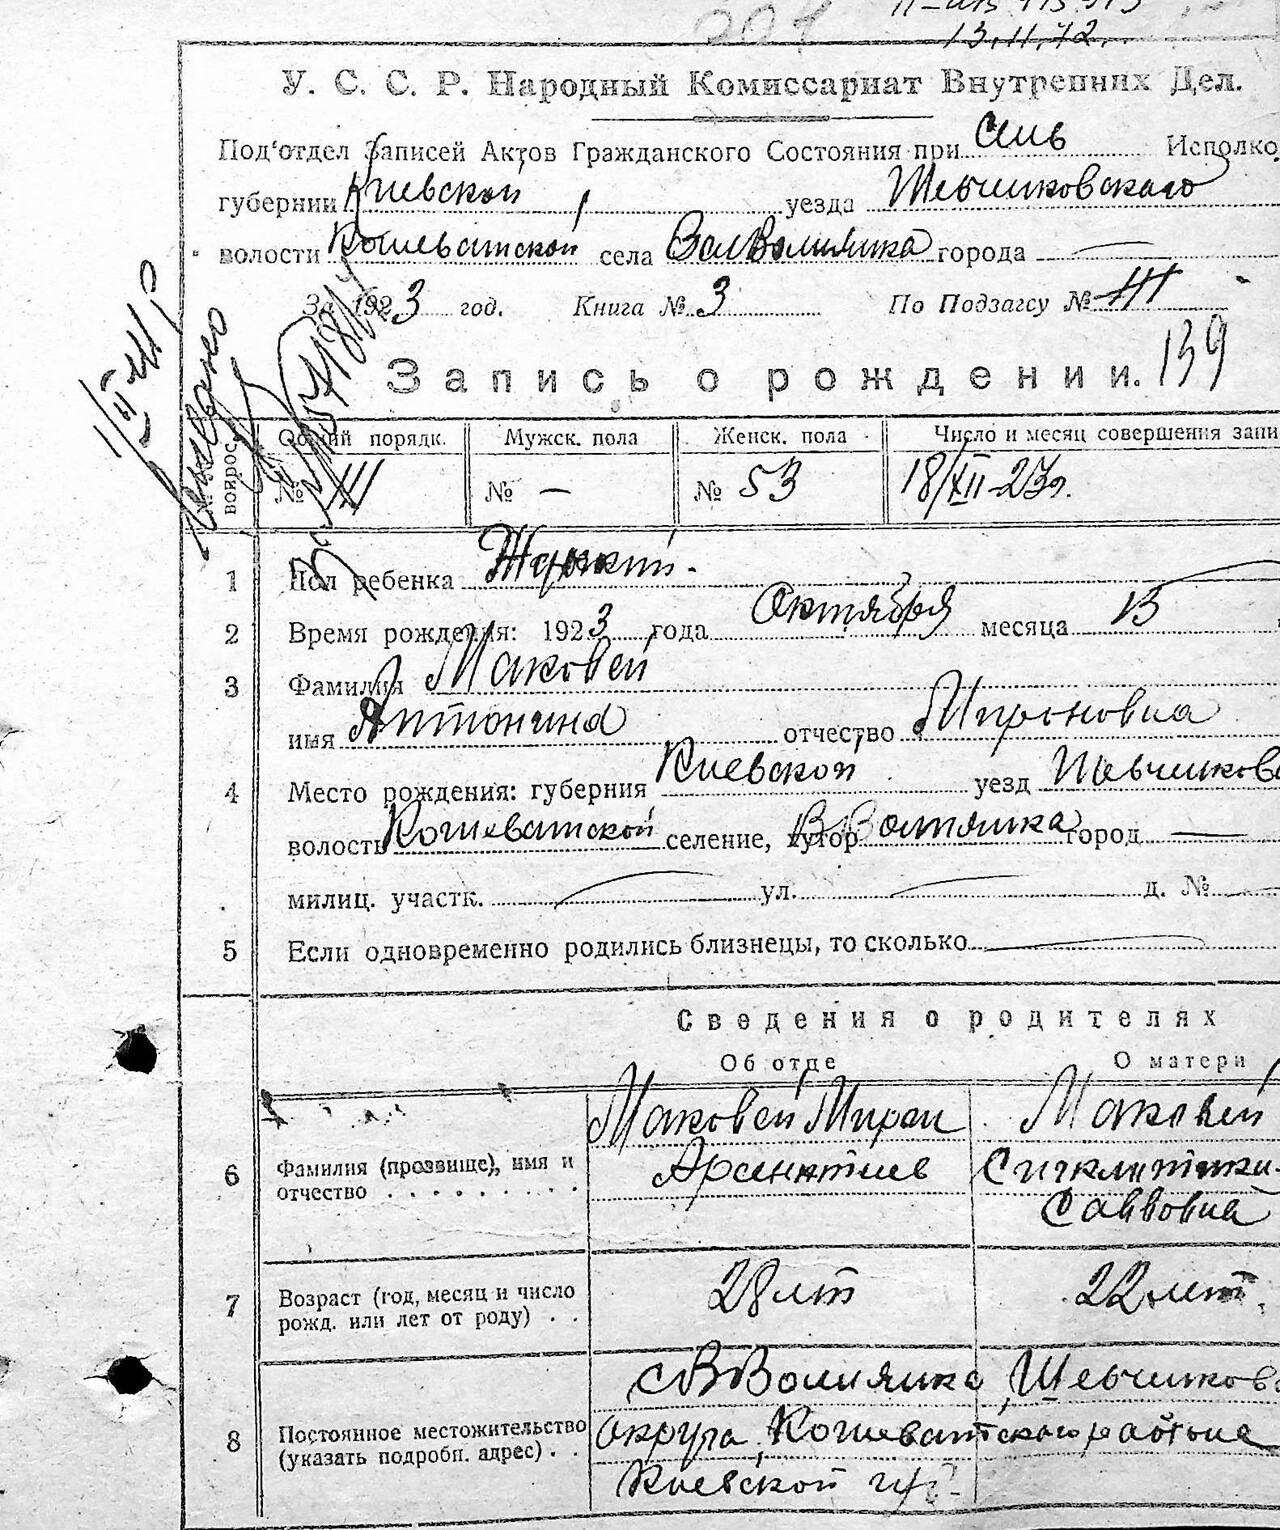 201
13.11.72.
У. С. С. Р. Народный Комиссариат Внутренних Дел.
Под'отдел Записей Актов Гражданского Состояния при Сель Исполко
губернии Киевской уезда Шевченковского
волости Кошеватской села ВелВолнянка города —
За 1923 год. Книга № 3 По Подзагсу №
Запись о рождении. 139
№ вопрос. Общий порядк. Мужск. пола Женск. пола Число и месяц совершения запи
№ № — № 53 18/XII-23г.
1 Пол ребенка Женский.
2 Время рождения: 1923 года Октября месяца 15
3 Фамилия Маковей
имя Антонина отчество Мироновна
4 Место рождения: губерния Киевской уезд Шевченковс
волость Кошеватской селение, хутор В Волнянка город —
милиц. участк. — ул. — д. № —
5 Если одновременно родились близнецы, то сколько —
Сведения о родителях
Об отце О матери
6 Фамилия (прозвище), имя и отчество Маковей Мирон Маковей
Арсентиев Синклитики
Саввовна
7 Возраст (год, месяц и число рожд. или лет от роду) 28 лет 22 лет.
8 Постоянное местожительство (указать подробн. адрес) с В Волнянка, Шевченковс
округа, Кошеватского района
Киевской губ.